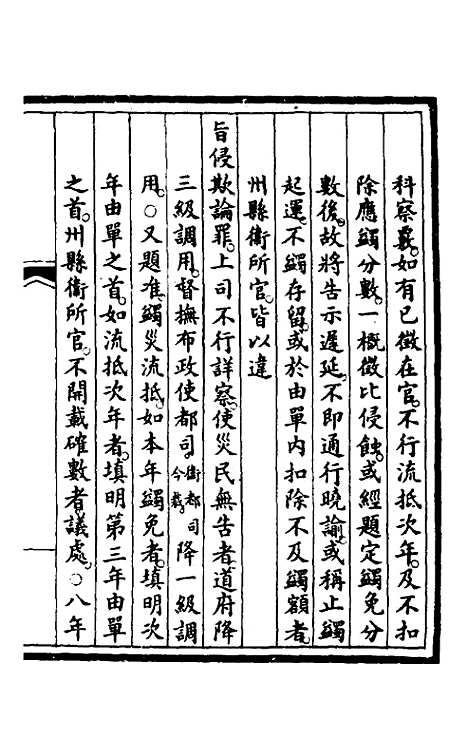 科察覈。如有已徵在官。不行流抵次年。及不扣
除應蠲分數。一概徵比侵蝕。或經題定蠲免分
數後。故將告示遲延。不即通行曉諭。或稱止蠲
起運。不蠲存留。或於由單內扣除不及蠲額者。
州縣衞所官。皆以違
旨侵欺論罪。上司不行詳察。使災民無告者。道府降
三級調用。督撫布政使都司。衞都司今裁。降一級調
用。○又題准蠲災流抵。如本年蠲免者。填明次
年由單之首。如流抵次年者。填明第三年由單
之首。州縣衞所官。不開載確數者議處。○八年